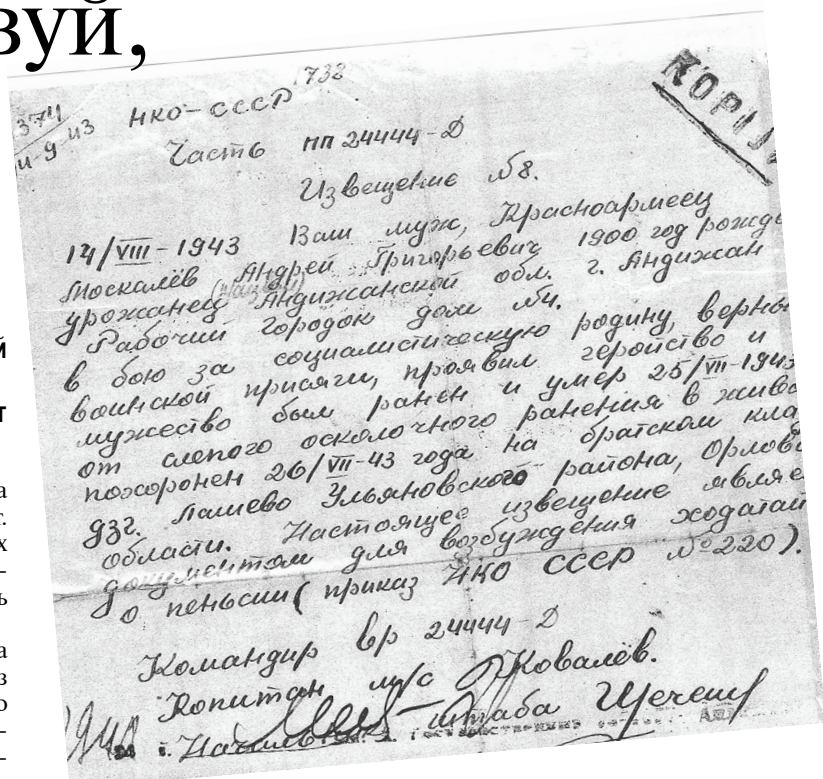 вуй,
1738
374
4-9-43
КОРИ
НКО-СССР
Часть пп 24444-Д
Извещение №8.
14/VIII-1943 Ваш муж, Красноармеец
Москалёв Андрей Григорьевич 1900 год рожде
урожанец Андижанской обл. г. Андижан
Рабочий городок дом №4.
в бою за социалистическую родину, верны
воинской присяги, проявил геройство и
мужество был ранен и умер 25/VII-1943
от слепого осколочного ранения в живо
похоронен 26/VII-43 года на братском кла
дзг. Ульяновского района, Орловс
области. Настоящее извещение являе
документом для возбуждения ходатай
о пеньсии (приказ НКО СССР №220).
Командир вр 24444-Д
Копитан м/с Ковалёв.
штаба
й
т
а
т.
х
–
ь
а
з
о
–
–